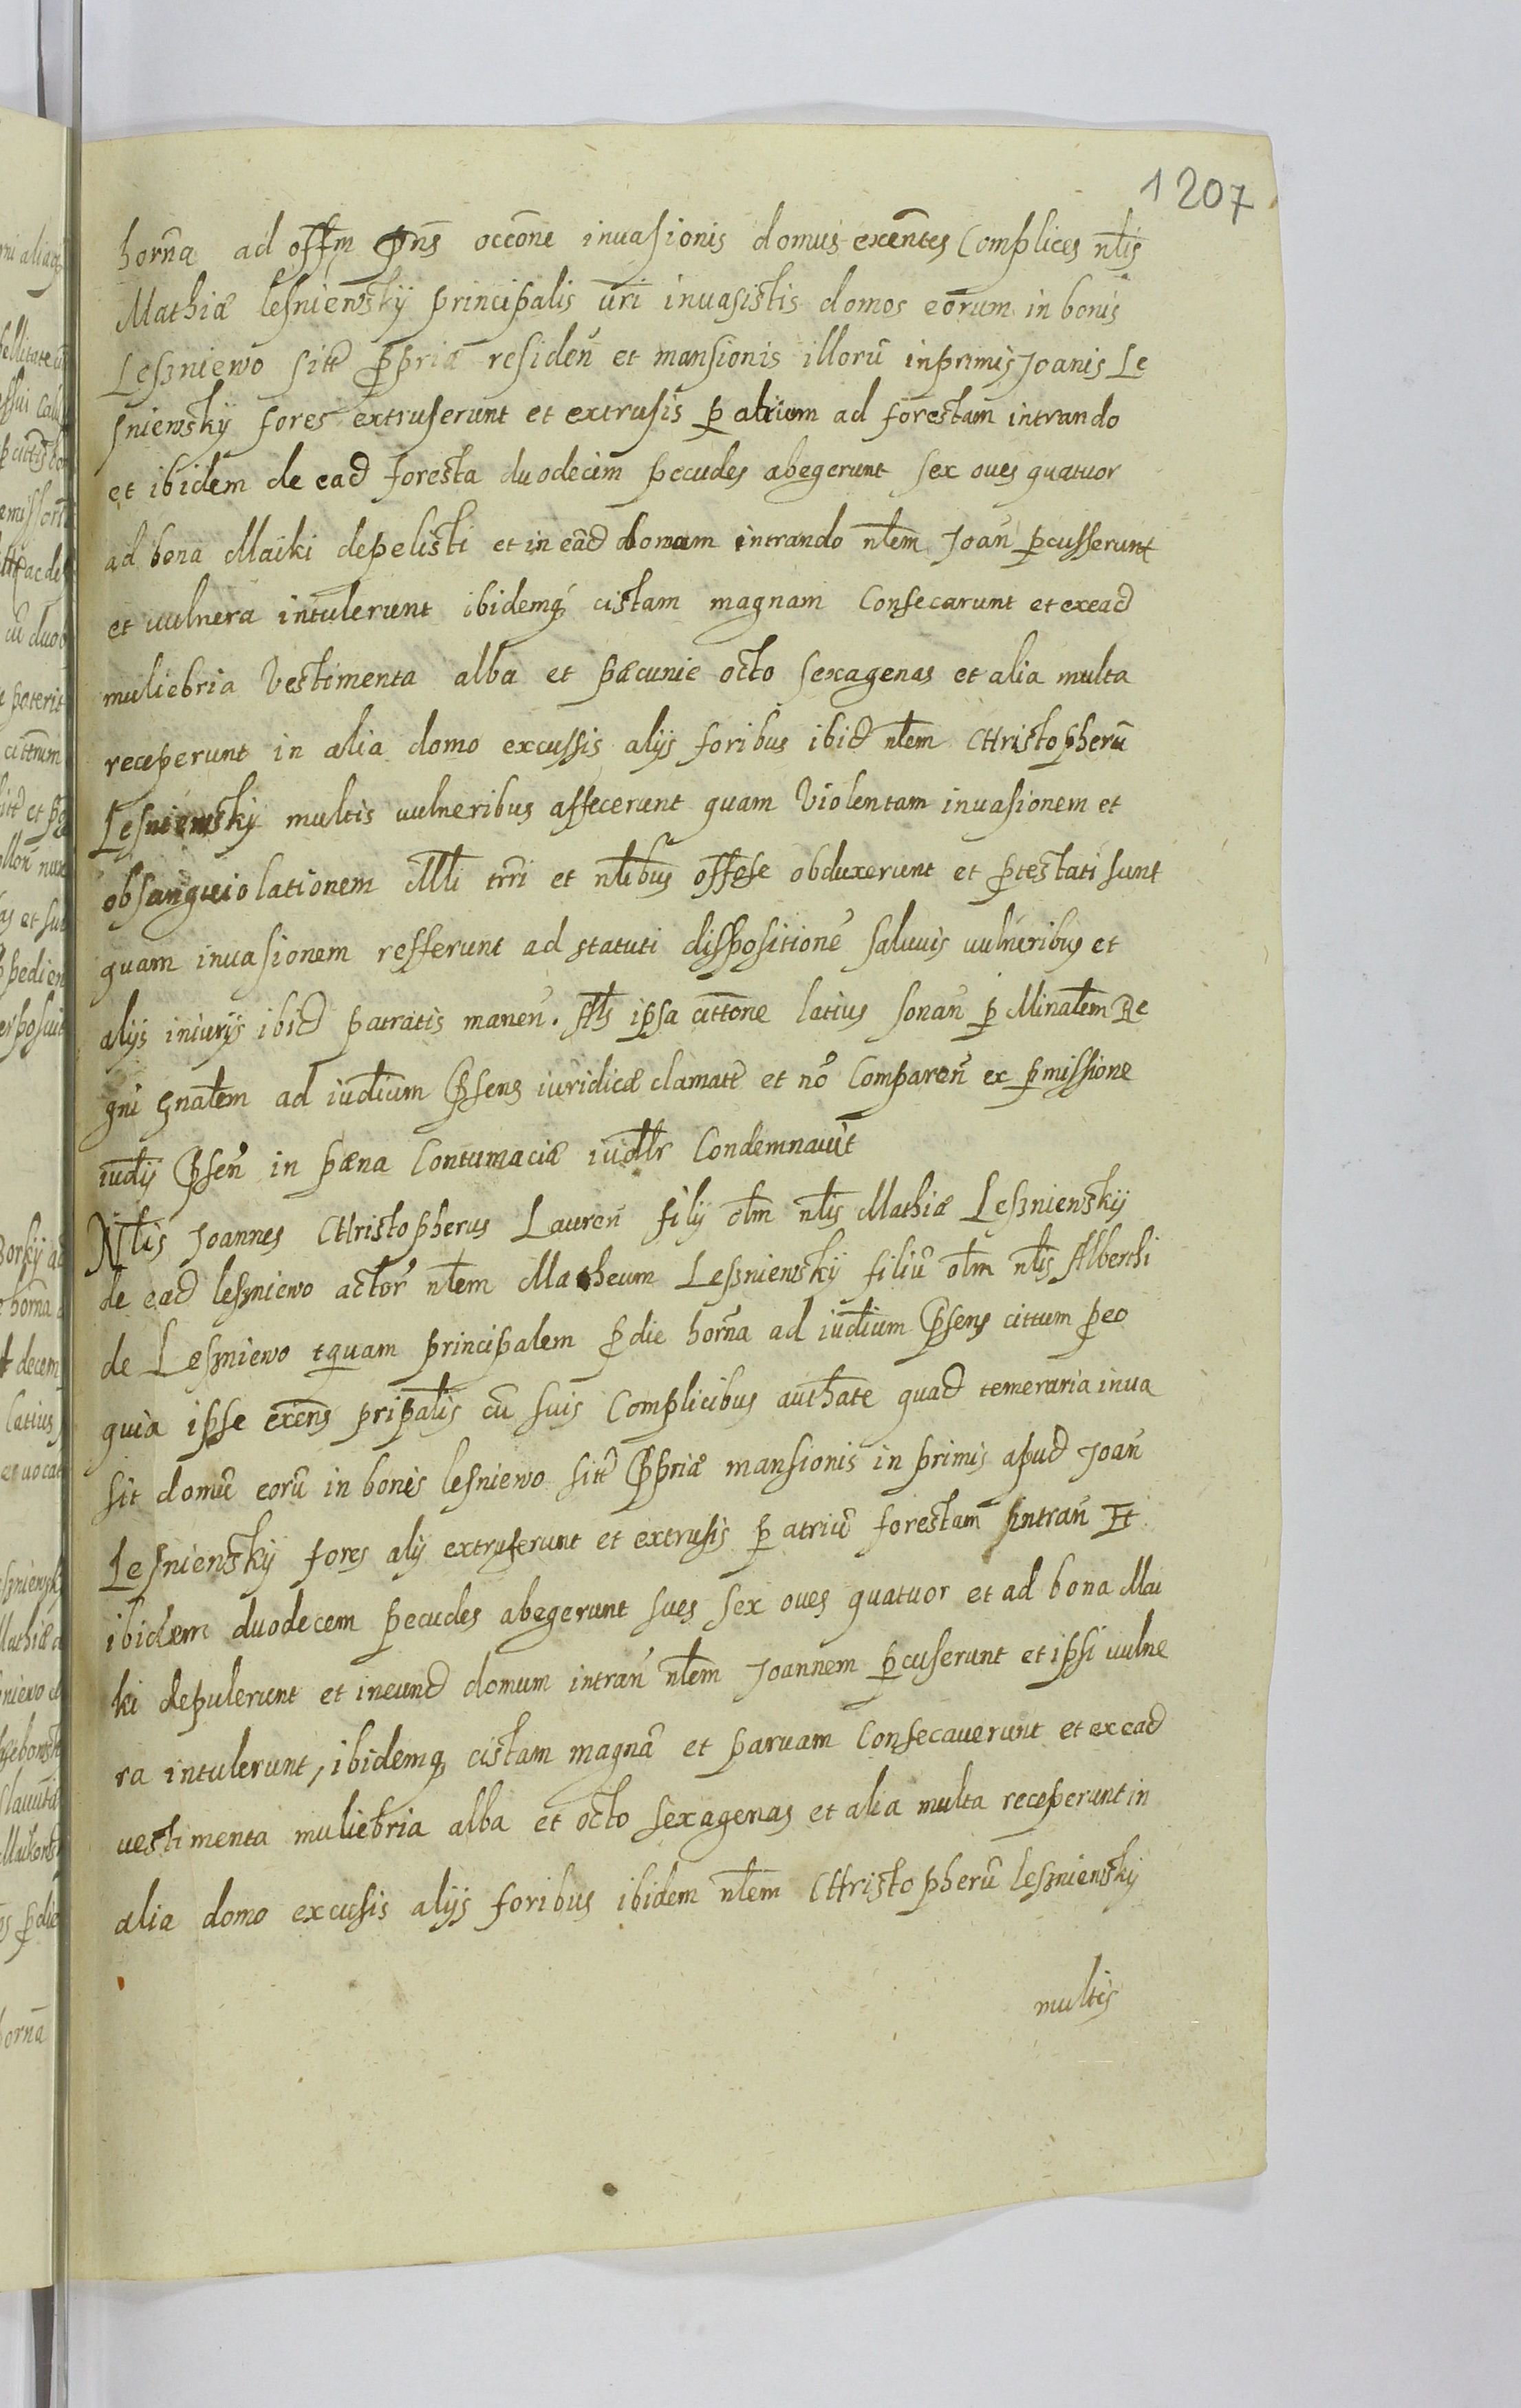 1207
horña ad offm pñs occone inuasionis domus exentes Complices nlis
Mathiæ lesniewskÿ principalis uri inuasistis domos eorum in bonis
Leszniewo sitt ppriæ residen et mansionis illorũ inprimis Joanis Le
sniewskÿ fores extruserunt et extrusis p atrium ad forestam intrando
et ibidem de ead foresta duodecim pecudes abegerunt sex oues quatuor
ad bona Maiki depelisti et in eãd domum intrando nlem Joan pcusserunt
et uulnera intulerunt ibidemq cistam magnam Consecarunt et exead
muliebria Vestimenta alba et pæcunie octo sexagenas et alia multa
receperunt in alia domo excussis alijs foribus ibid nlem CHristopherũ
Lesniewskÿ multis uulneribus affecerunt quam Violentam inuasionem et
obsanguiolationem Mli trri et nlibus offese obduxerunt et ptestati sunt
quam inuasionem refferunt ad statuti dispositione saluis uulneribus et
alijs iniurijs ibid patratis manen. Als ipsa cittone latius sonan p Minalem Re
gni gnalem ad iudium Psens iuridicæ clamate et nõ Comparen ex pmissione
iudij Psen in pæna Contumaciæ iudlr Condemnauit
Nlis Joannes CHristopherus Lauren filij olm nlis Mathiæ Leszniewskij
de ead leszniewo actor nlem Matheum Leszniewskÿ filiũ olm nlis Alberthi
de Leszniewo tquam principalem pdie horña ad iudium Psens cittum peo
quia ipse exens pripalis cũ suis Complicibus authate quad temeraria inua
sit domũ eorũ in bonis lesniewo sitt Ppriæ mansionis in primis apud Joan
Lesniewskÿ fores alij extruserunt et extrusis p atriũ forestam intran Et
ibidem duodecem pecudes abegerunt sues sex oues quatuor et ad bona Mai
ki depulerunt et ineund domum intran nlem Joannem pcuserunt et ipsi uulne
ra intulerunt, ibidemq cistam magnã et paruam Consecauerunt et exead
uestimenta muliebria alba et octo sexagenas et alia multa receperunt in
alia domo excusis alijs foribus ibidem nlem CHristopherũ leszniewskÿ
multis